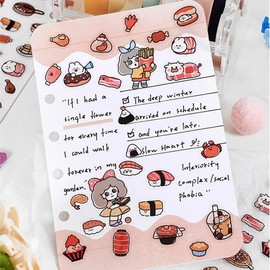 "If I had a
single flower
for every time
I could walk
forever in my
garden."
☑ The deep winter
arrived on schedule
☑ and you're late.
Slow Heart
Inferiority
complex/social
phobia"